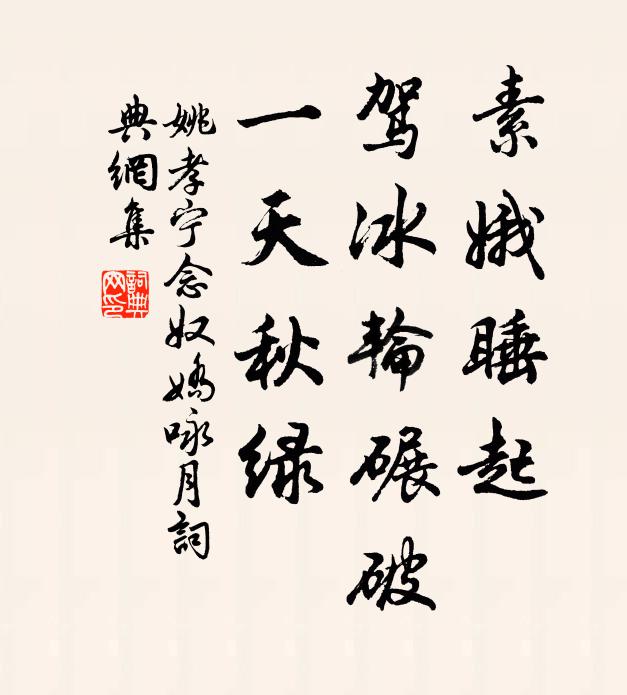 素娥睡起
驾冰轮碾破
一天秋绿
姚孝宁念奴娇咏月詞
典網集
詞典网印